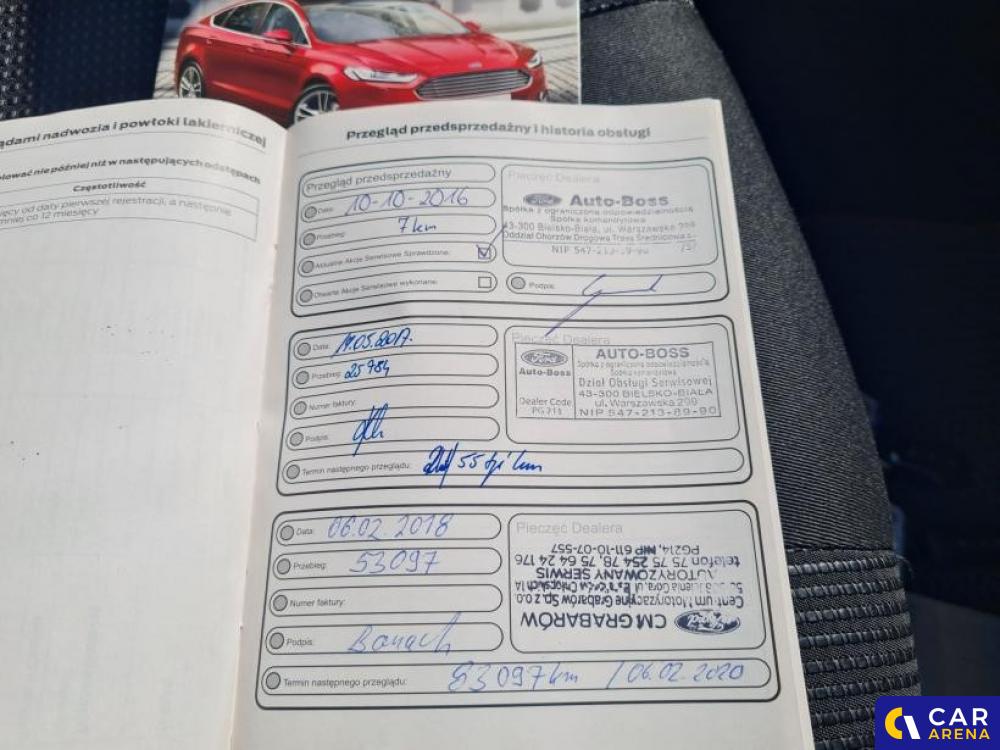 ądami nadwozia i powłoki lakierniczej
nie później niż w następujących odstępach
Częstotliwość
ęcy od daty pierwszej rejestracji, a następnie
mniej co 12 miesięcy
Przegląd przedsprzedażny i historia obsługi
Przegląd przedsprzedażny
Data: 10-10-2016
Przebieg: 7 km
Aktualne Akcje Serwisowe Sprawdzone:
Otwarte Akcje Serwisowe wykonane:
Pieczęć Dealera
Ford Auto-Boss
Spółka z ograniczoną odpowiedzialnością
Spółka komandytowa
43-300 Bielsko-Biała, ul. Warszawska 299
Oddział Chorzów Drogowa Trasa Średnicowa
NIP 547-213-89-90
Podpis:
Data: 05.2017.
Przebieg: 25784
Numer faktury:
Podpis:
Termin następnego przeglądu: 55 tyś km
Pieczęć Dealera
Ford
Auto-Boss
Dealer Code
PG 213
AUTO-BOSS
Spółka z ograniczoną odpowiedzialnością
Spółka komandytowa
Dział Obsługi Serwisowej
43-300 BIELSKO-BIAŁA
ul. Warszawska 299
NIP 547-213-89-90
Data: 06.02.2018
Przebieg: 53097
Numer faktury:
Podpis: Banach
Termin następnego przeglądu: 83 097 km / 06.02.2020
Pieczęć Dealera
Ford CM GRABARÓW
Centrum Motoryzacyjne Grabarów Sp. z o.o.
AUTORYZOWANY SERWIS
telefon 75 75 254 78, 75 64 24 176
PG214, NIP 611-10-07-557
CAR
ARENA